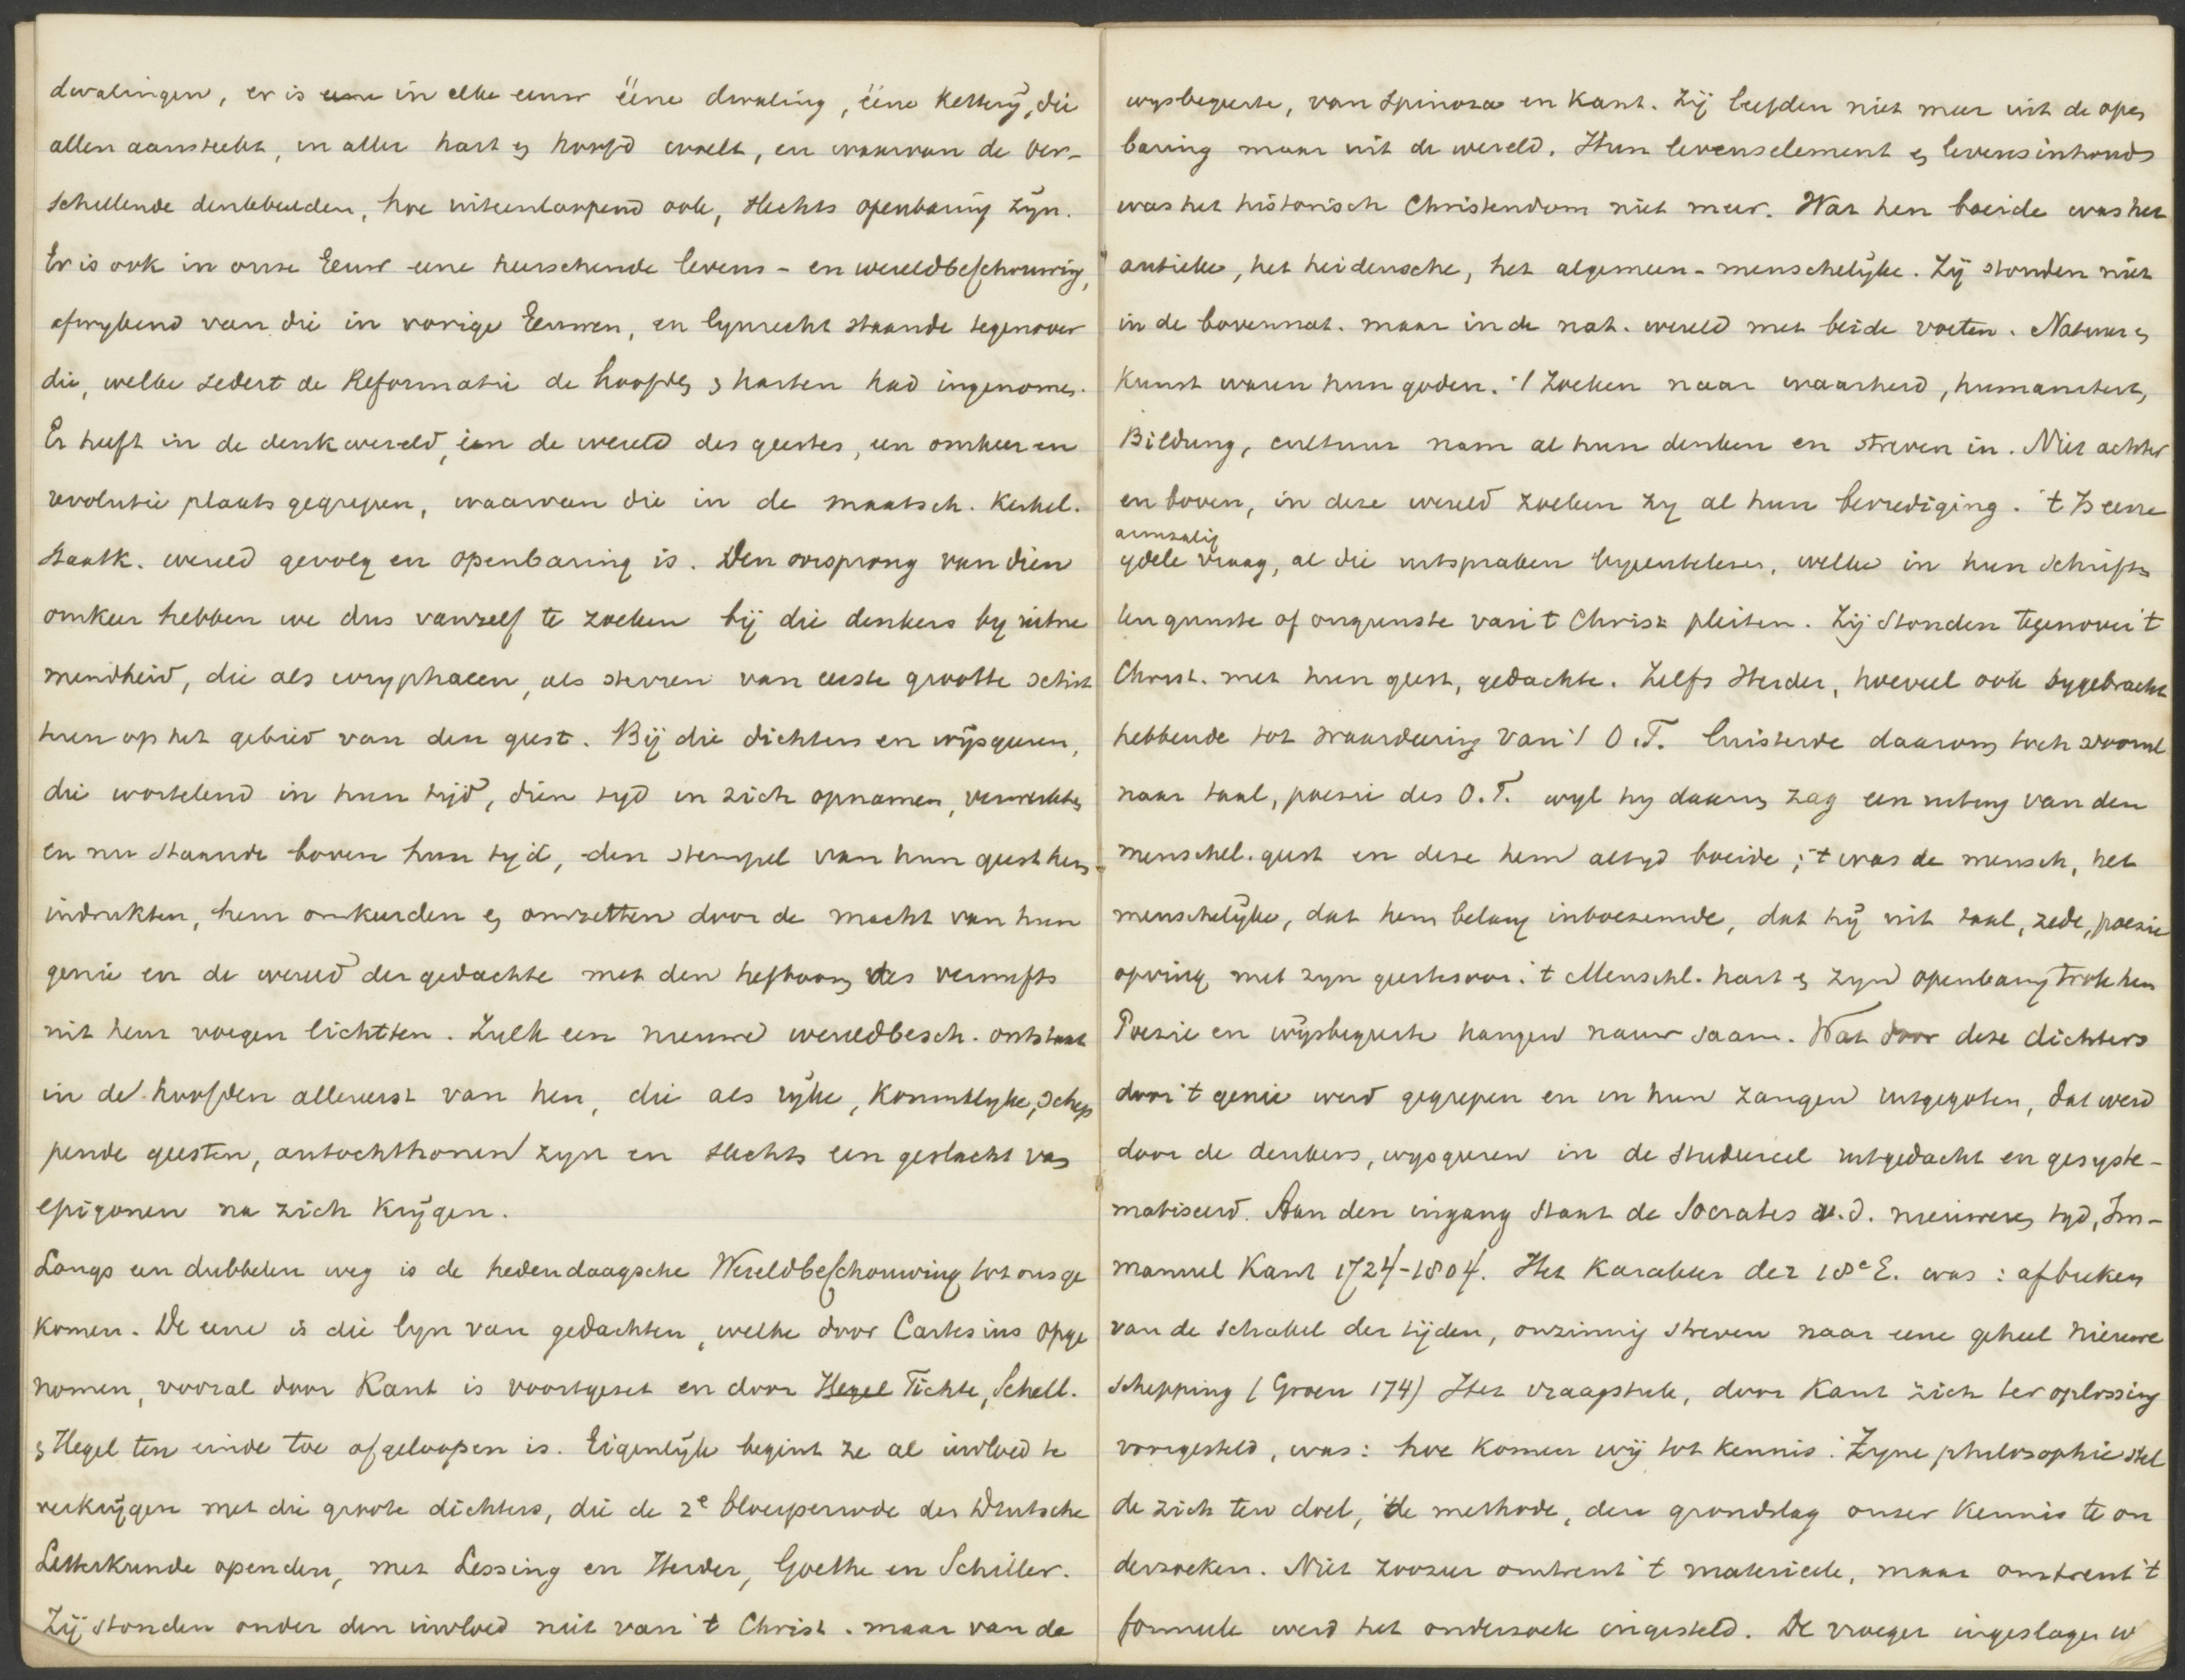 dwalingen, er is eene in elke eeuw ééne dwaling, ééne ketterij, die
allen aansteekt, in aller hart en hoofd woelt, en waarvan de ver-
schillende denkbeelden, hoe uiteenloopend ook, slechts openbaring zijn.
Er is ook in onze Eeuw eene heerschende levens- en wereldbeschouwing,
afwykend van die in vorige Eeuwen, en lynrecht staande tegenover
die, welke sedert de Reformatie de hoofden en harten had ingenomen.
Er heeft in de denkwereld, in de wereld des geestes, een omkeer en
revolutie plaats gegrepen, waarvan die in de maatsch. Kerkel.
Staatk. wereld gevolg en openbaring is. Den oorsprong van dien
omkeer hebben we dus vanzelf te zoeken bij die denkers by uitne
mendheid, die als coryphaeen, als sterren van eerste grootte schit
teren op het gebied van den geest. Bij die dichters en wijsgeeren,
die wortelend in hun tijd, dien tyd in zich opnamen, verwerkten
en nu staande boven hun tyd, den stempel van hun geest hem
indrukten, hem omkeerden en omzetten door de macht van hun
genie en de wereld der gedachte met den hefboom des vernufts
uit hem voegen lichtten. Zulk een nieuwe wereldbesch. ontstaat
in de hoofden allereerst van hen, die als rijke, Koninklyke, schep
pende geesten, autochthonen zyn en slechts een geslacht van
epigonen na zich krijgen.
Langs een dubbelen weg is de hedendaagsche Wereldbeschouwing tot ons ge
komen. De eene is die lyn van gedachten, welke door Cartesius opge
nomen, vooral door Kant is voortgezet en door Hegel Fichte, Schell.
en Hegel ten einde toe afgeloopen is. Eigenlijk begint ze al invloed te
verkrijgen met die groote dichters, die de 2e bloeiperiode der Duitsche
Letterkunde openden, met Lessing en Herder, Goethe en Schiller.
Zij stonden onder den invloed niet van 't Christ. maar van de
wysbegeerte, van Spinoza en Kant. Zij leefden niet meer uit de open
baring maar uit de wereld. Hun levenselement en levensinhoud
was het historisch Christendom niet meer. Wat hen boeide was het
antieke, het heidensche, het algemeen-menschelijke. Zij stonden niet
in de bovennat. maar in de nat. wereld met beide voeten. Natuur en
Kunst waren hun goden. 't Zoeken naar waarheid, humaniteit,
Bildung, cultuur nam al hun denken en streven in. Niet achter
en boven, in deze wereld zoeken zy al hun bevrediging. 't Is eene
armzalig
ydele vraag, al die uitspraken byeentelezen, welke in hun schriften
ten gunste of ongunste van 't Christ pleiten. Zij stonden tegenover 't
Christ. met hun geest, gedachte. Zelfs Herder, hoeveel ook bygebracht
hebbende tot waardeering van 't O.T. luisterde daarom toch vooral
naar taal, poesie des O.T. wyl hy daarin zag een uiting van den
menschel. geest en deze hem altyd boeide; 't was de mensch, het
menschelijke, dat hem belang inboezemde, dat hij uit taal, zede, poezie
opving met zyn geestesoor. 't Menschl. hart en zyn openbaring trok hem
Poezie en wijsbegeerte hangen nauw saam. Wat door deze dichters
door 't genie werd gegrepen en in hun zangen uitgegoten, dat werd
door de denkers, wysgeeren in de studeercel uitgedacht en gesyste-
matiseerd. Aan den ingang staat de Socrates v.d. nieuweren tyd, Im-
manuel Kant 1724-1804. Het karakter der 18e E. was: afbreken
van de schakel der tijden, onzinnig streven naar eene geheel nieuwe
schepping (Groen 174) Het vraagstuk, door Kant zich ter oplossing
voorgesteld, was: hoe komen wij tot kennis. Zyne philosophie stel
de zich ten doel, de methode, den grondslag onzer kennis te on
derzoeken. Niet zoozeer omtrent 't materieele, maar omtrent 't
formeele werd het onderzoek ingesteld. De vroeger ingeslagen w